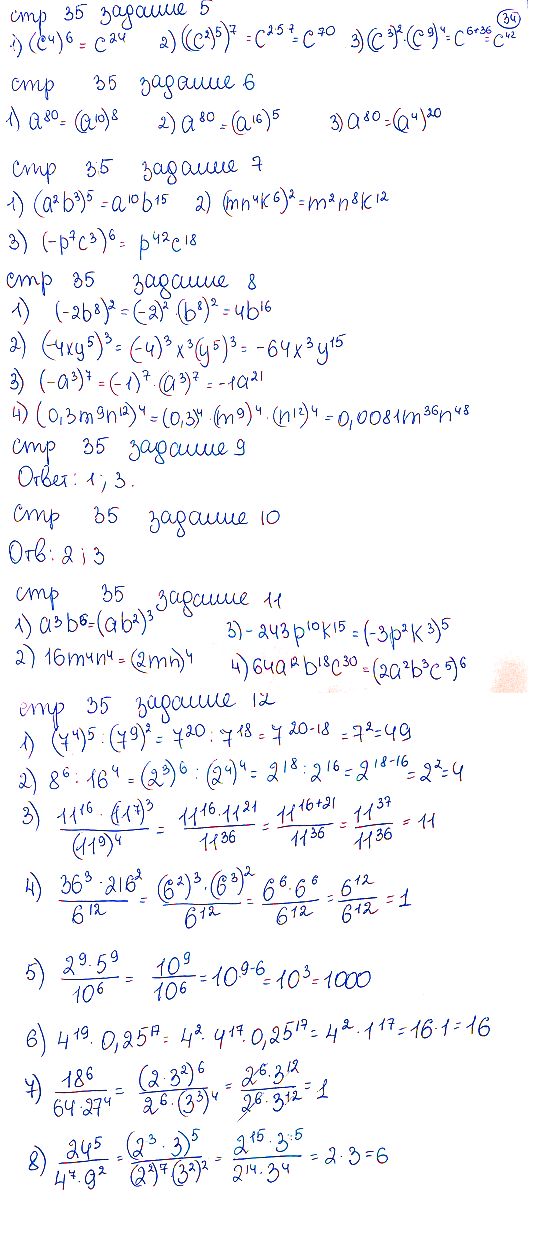 34
стр 35 задание 5
1) (c⁴)⁶ = c²⁴ 2) ((c²)⁵)⁷ = c²·⁵·⁷ = c⁷⁰ 3) (c³)²·(c⁹)⁴ = c⁶⁺³⁶ = c⁴²
стр 35 задание 6
1) a⁸⁰ = (a¹⁰)⁸ 2) a⁸⁰ = (a¹⁶)⁵ 3) a⁸⁰ = (a⁴)²⁰
стр 35 задание 7
1) (a²b³)⁵ = a¹⁰b¹⁵ 2) (mn⁴k⁶)² = m²n⁸k¹²
3) (-p⁷c³)⁶ = p⁴²c¹⁸
стр 35 задание 8
1) (-2b⁸)² = (-2)²·(b⁸)² = 4b¹⁶
2) (-4xy⁵)³ = (-4)³x³(y⁵)³ = -64x³y¹⁵
3) (-a³)⁷ = (-1)⁷·(a³)⁷ = -1a²¹
4) (0,3m⁹n¹²)⁴ = (0,3)⁴·(m⁹)⁴·(n¹²)⁴ = 0,0081m³⁶n⁴⁸
стр 35 задание 9
Ответ: 1; 3.
стр 35 задание 10
Отв: 2; 3
стр 35 задание 11
1) a³b⁶ = (ab²)³ 3) -243p¹⁰k¹⁵ = (-3p²k³)⁵
2) 16m⁴n⁴ = (2mn)⁴ 4) 64a¹²b¹⁸c³⁰ = (2a²b³c⁵)⁶
стр 35 задание 12
1) (7⁴)⁵ : (7⁹)² = 7²⁰ : 7¹⁸ = 7²⁰⁻¹⁸ = 7² = 49
2) 8⁶ : 16⁴ = (2³)⁶ : (2⁴)⁴ = 2¹⁸ : 2¹⁶ = 2¹⁸⁻¹⁶ = 2² = 4
3) 11¹⁶·(11⁷)³/(11⁹)⁴ = 11¹⁶·11²¹/11³⁶ = 11¹⁶⁺²¹/11³⁶ = 11³⁷/11³⁶ = 11
4) 36³·216²/6¹² = (6²)³·(6³)²/6¹² = 6⁶·6⁶/6¹² = 6¹²/6¹² = 1
5) 2⁹·5⁹/10⁶ = 10⁹/10⁶ = 10⁹⁻⁶ = 10³ = 1000
6) 4¹⁹·0,25¹⁷ = 4²·4¹⁷·0,25¹⁷ = 4²·1¹⁷ = 16·1 = 16
7) 18⁶/64·27⁴ = (2·3²)⁶/2⁶·(3³)⁴ = 2⁶·3¹²/2⁶·3¹² = 1
8) 24⁵/4⁷·9² = (2³·3)⁵/(2²)⁷·(3²)² = 2¹⁵·3⁵/2¹⁴·3⁴ = 2·3 = 6